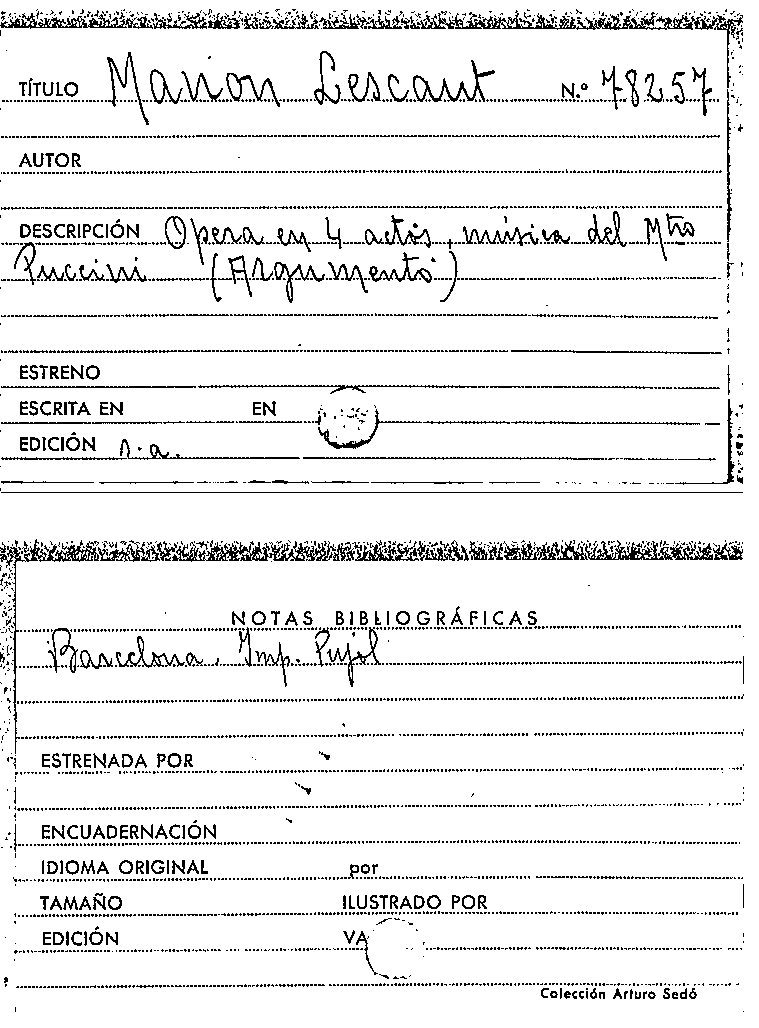 TÍTULO Manon Lescaut N.º 78257
AUTOR
DESCRIPCIÓN Opera en 4 actos, música del Mtro
Puccini (Argumento)
ESTRENO
ESCRITA EN EN
EDICIÓN s.a.
NOTAS BIBLIOGRÁFICAS
Barcelona. Imp. Pujol
ESTRENADA POR
ENCUADERNACIÓN
IDIOMA ORIGINAL por
TAMAÑO ILUSTRADO POR
EDICIÓN VA
Colección Arturo Sedó